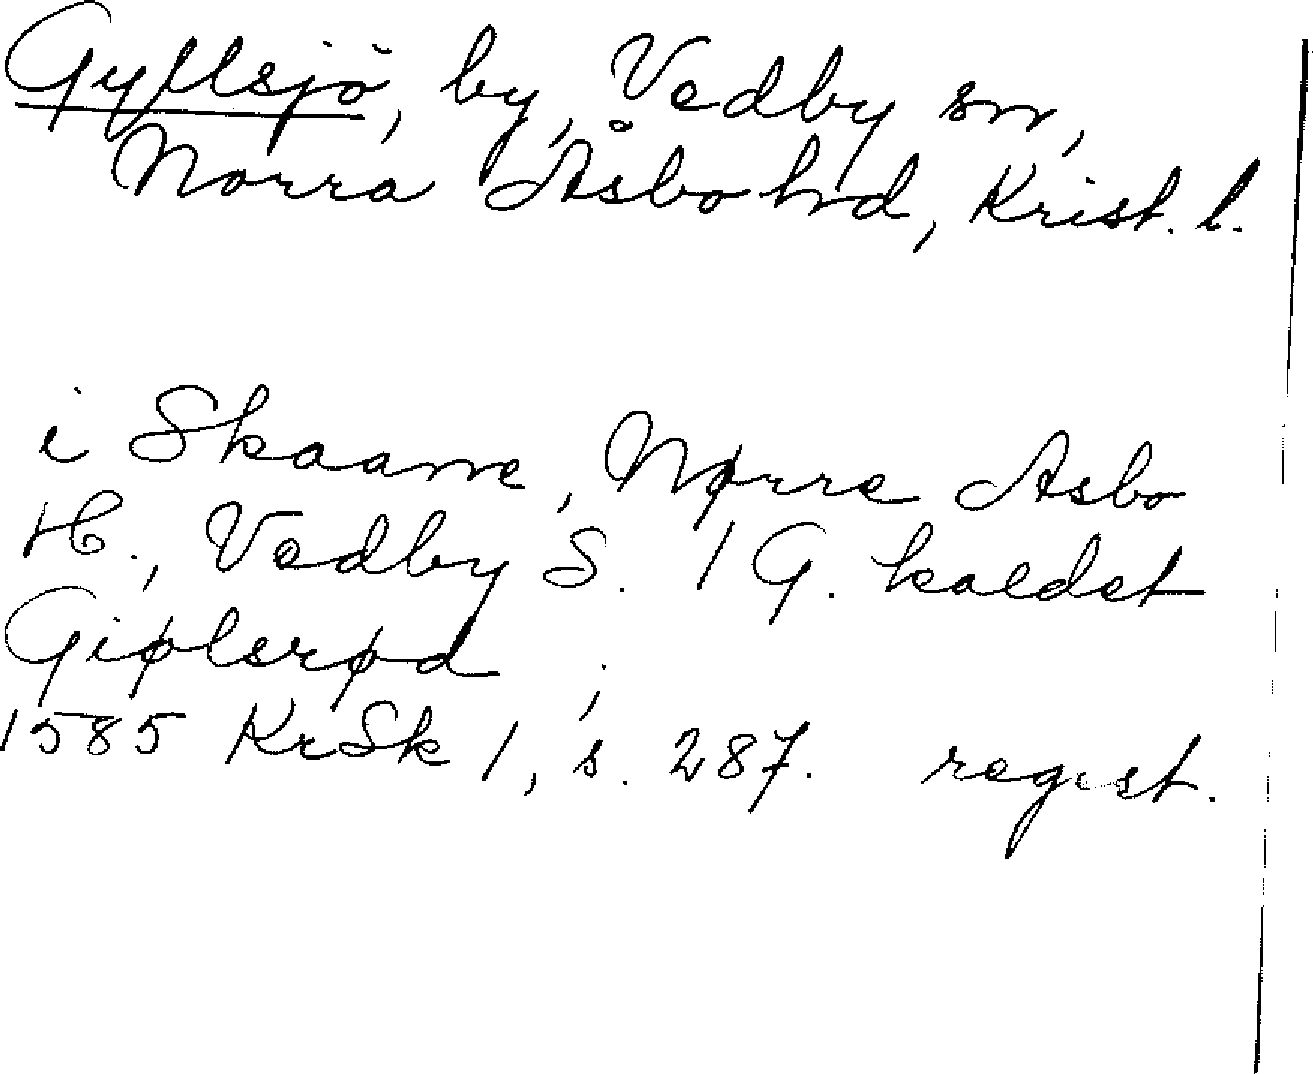 Gyllsjö, by, Vedby sn,
Norra Åsbo hd, Krist. l.
i Skaane, Nørre Asbo
H., Vedby S. 1 G. kaldet
Giølsrød ;
1585 KrSk 1, s. 287. regist.